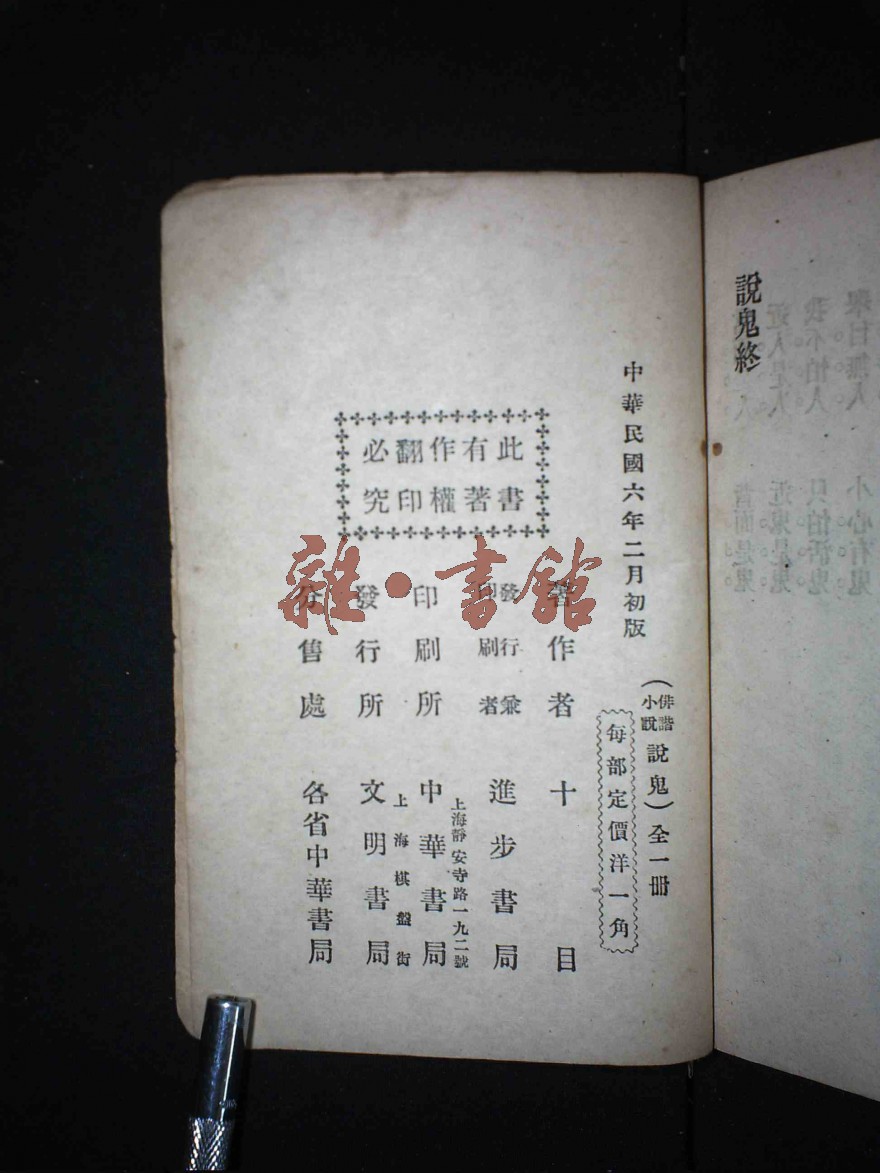 說鬼終
中華民國六年二月初版
（俳諧小說說鬼）全一冊
每部定價洋一角
著作者 十目
發行兼印刷者 進步書局
上海靜安寺路一九二號
印刷所 中華書局
上海棋盤街
發行所 文明書局
分售處 各省中華書局
此書
有著
作權
翻印
必究
雜·書館